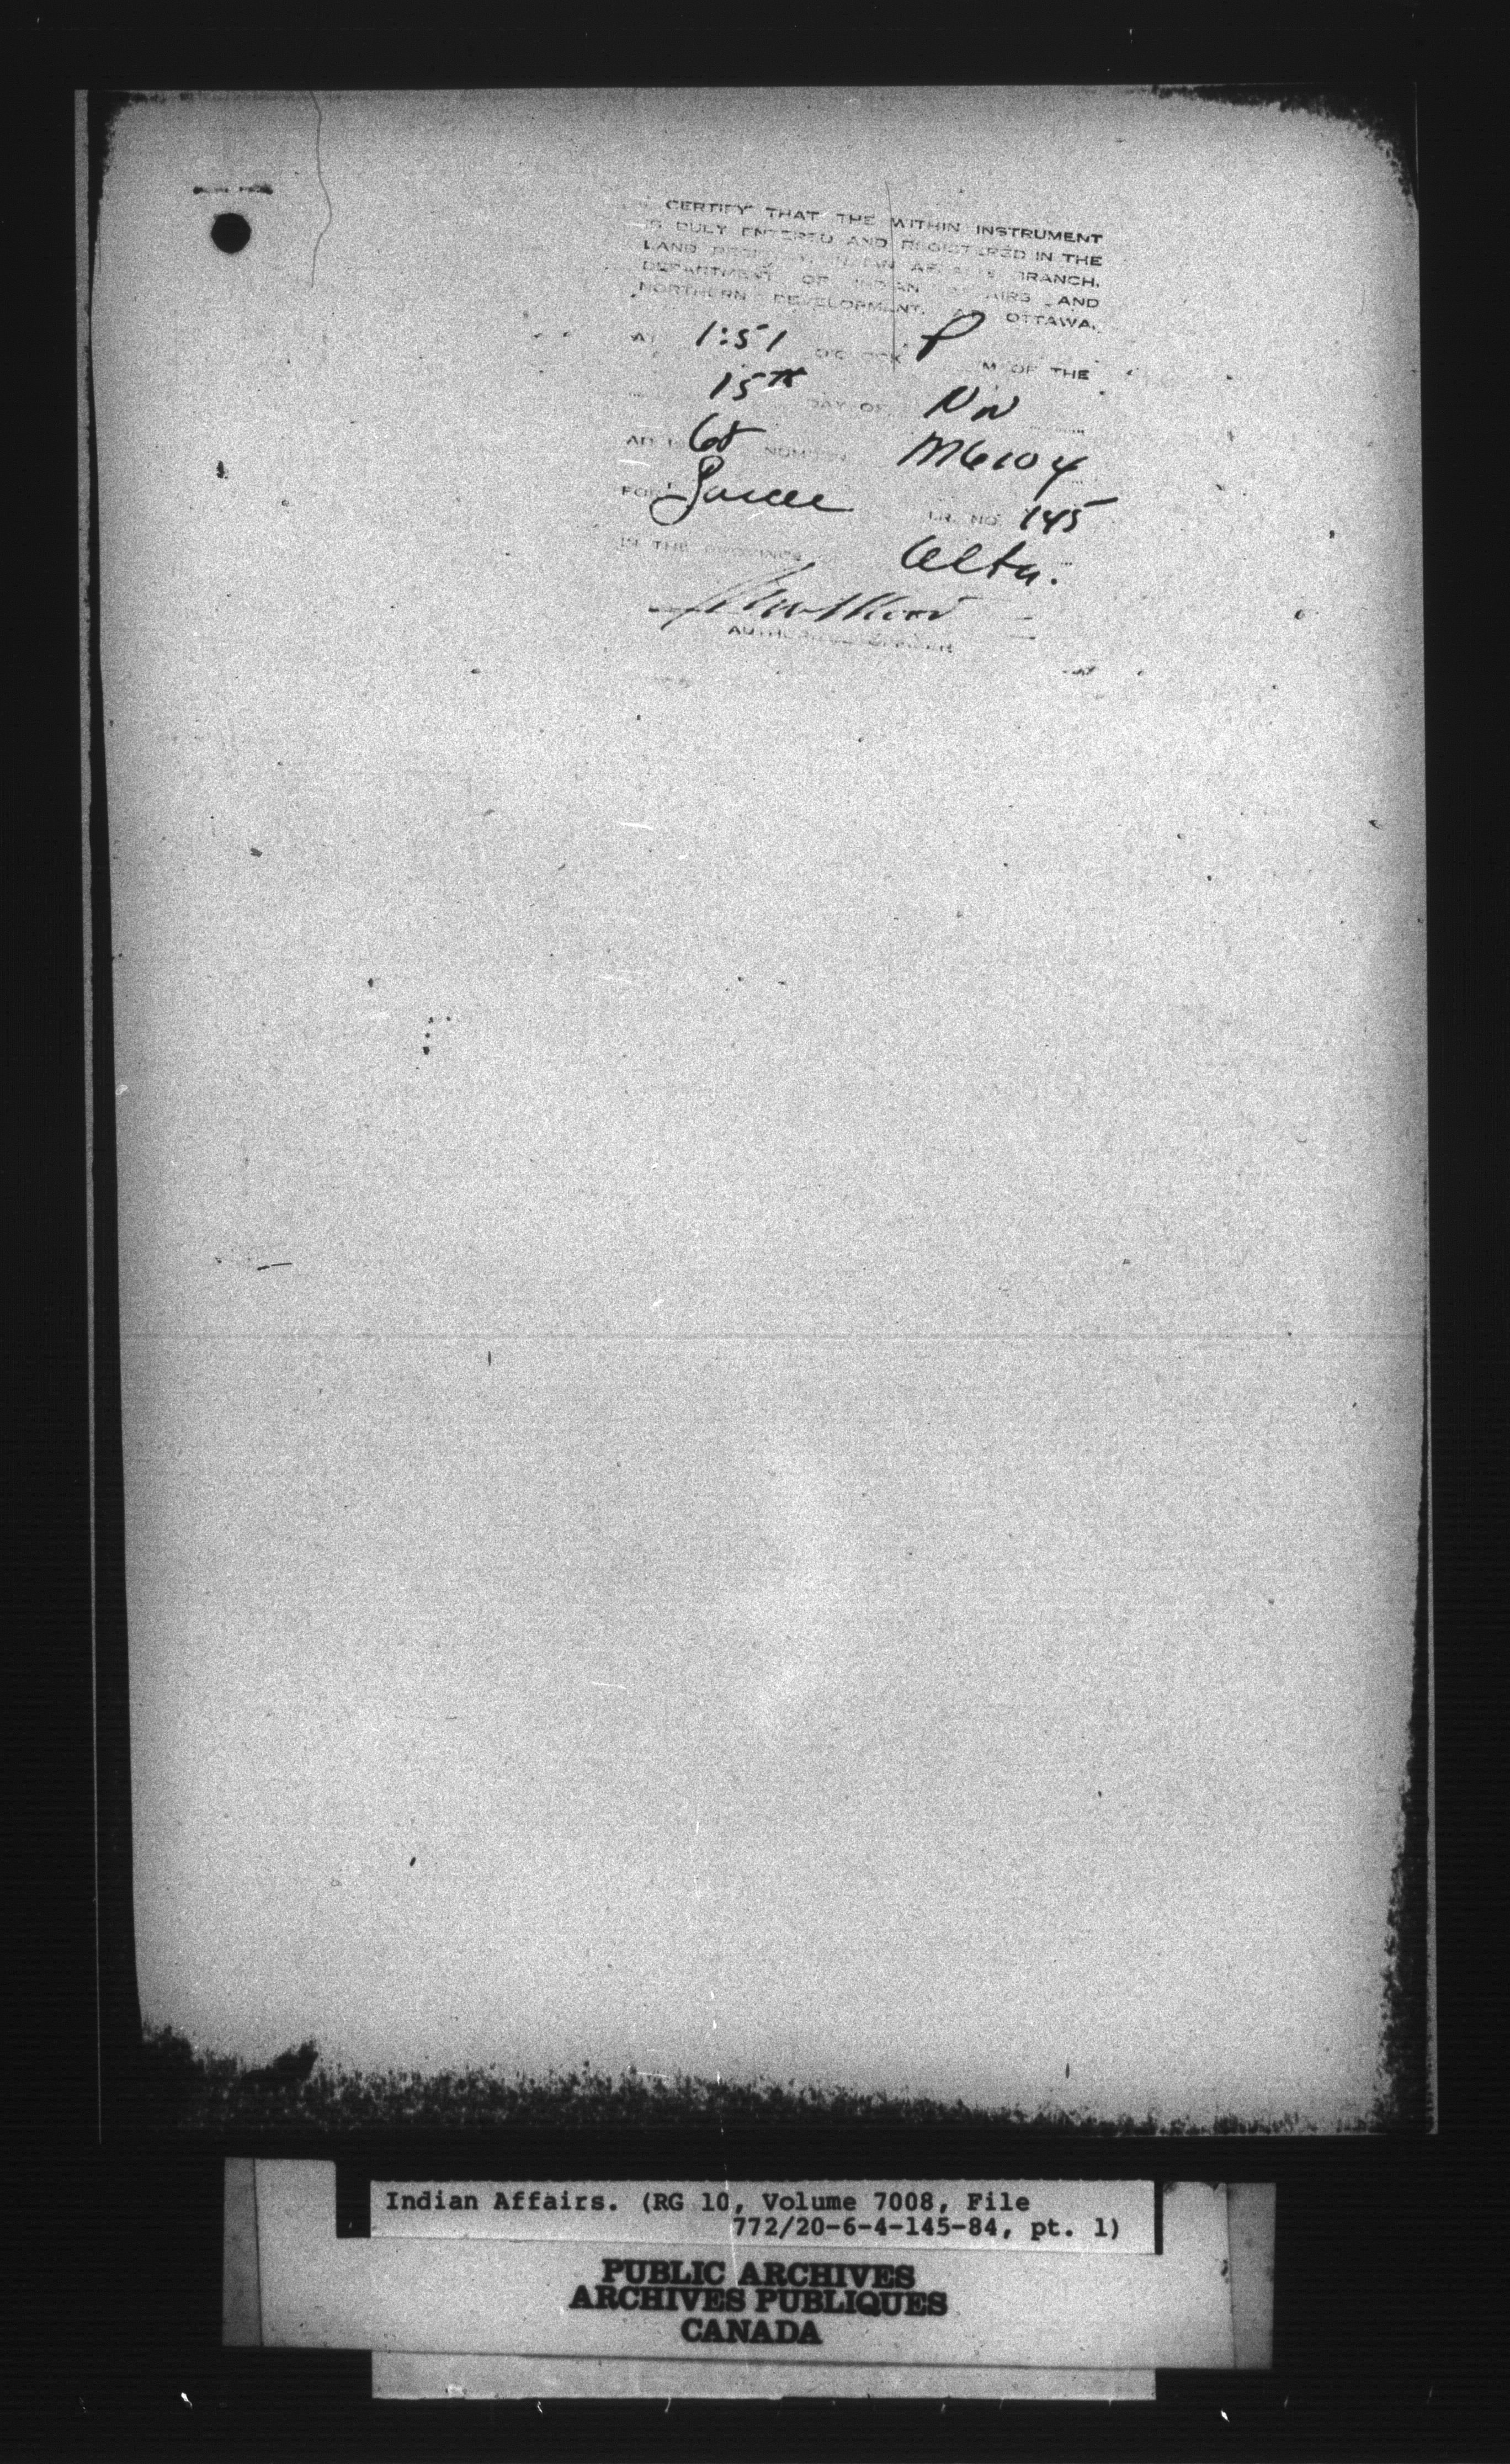 CERTIFY THAT THE WITHIN INSTRUMENT
IS DULY ENTERED AND REGISTERED IN THE
LAND INDIAN AFFAIRS BRANCH,
DEPARTMENT OF INDIAN AFFAIRS AND
NORTHERN DEVELOPMENT, AT OTTAWA,
AT 1:51 O'CLOCK P M OF THE
15th DAY OF Nov
AD 19 68 NUMBER M6104
FOR Sarcee I.R. NO. 145
IN THE PROVINCE Alta.
AUTHORIZED OFFICER
Indian Affairs. (RG 10, Volume 7008, File
772/20-6-4-145-84, pt. 1)
PUBLIC ARCHIVES
ARCHIVES PUBLIQUES
CANADA